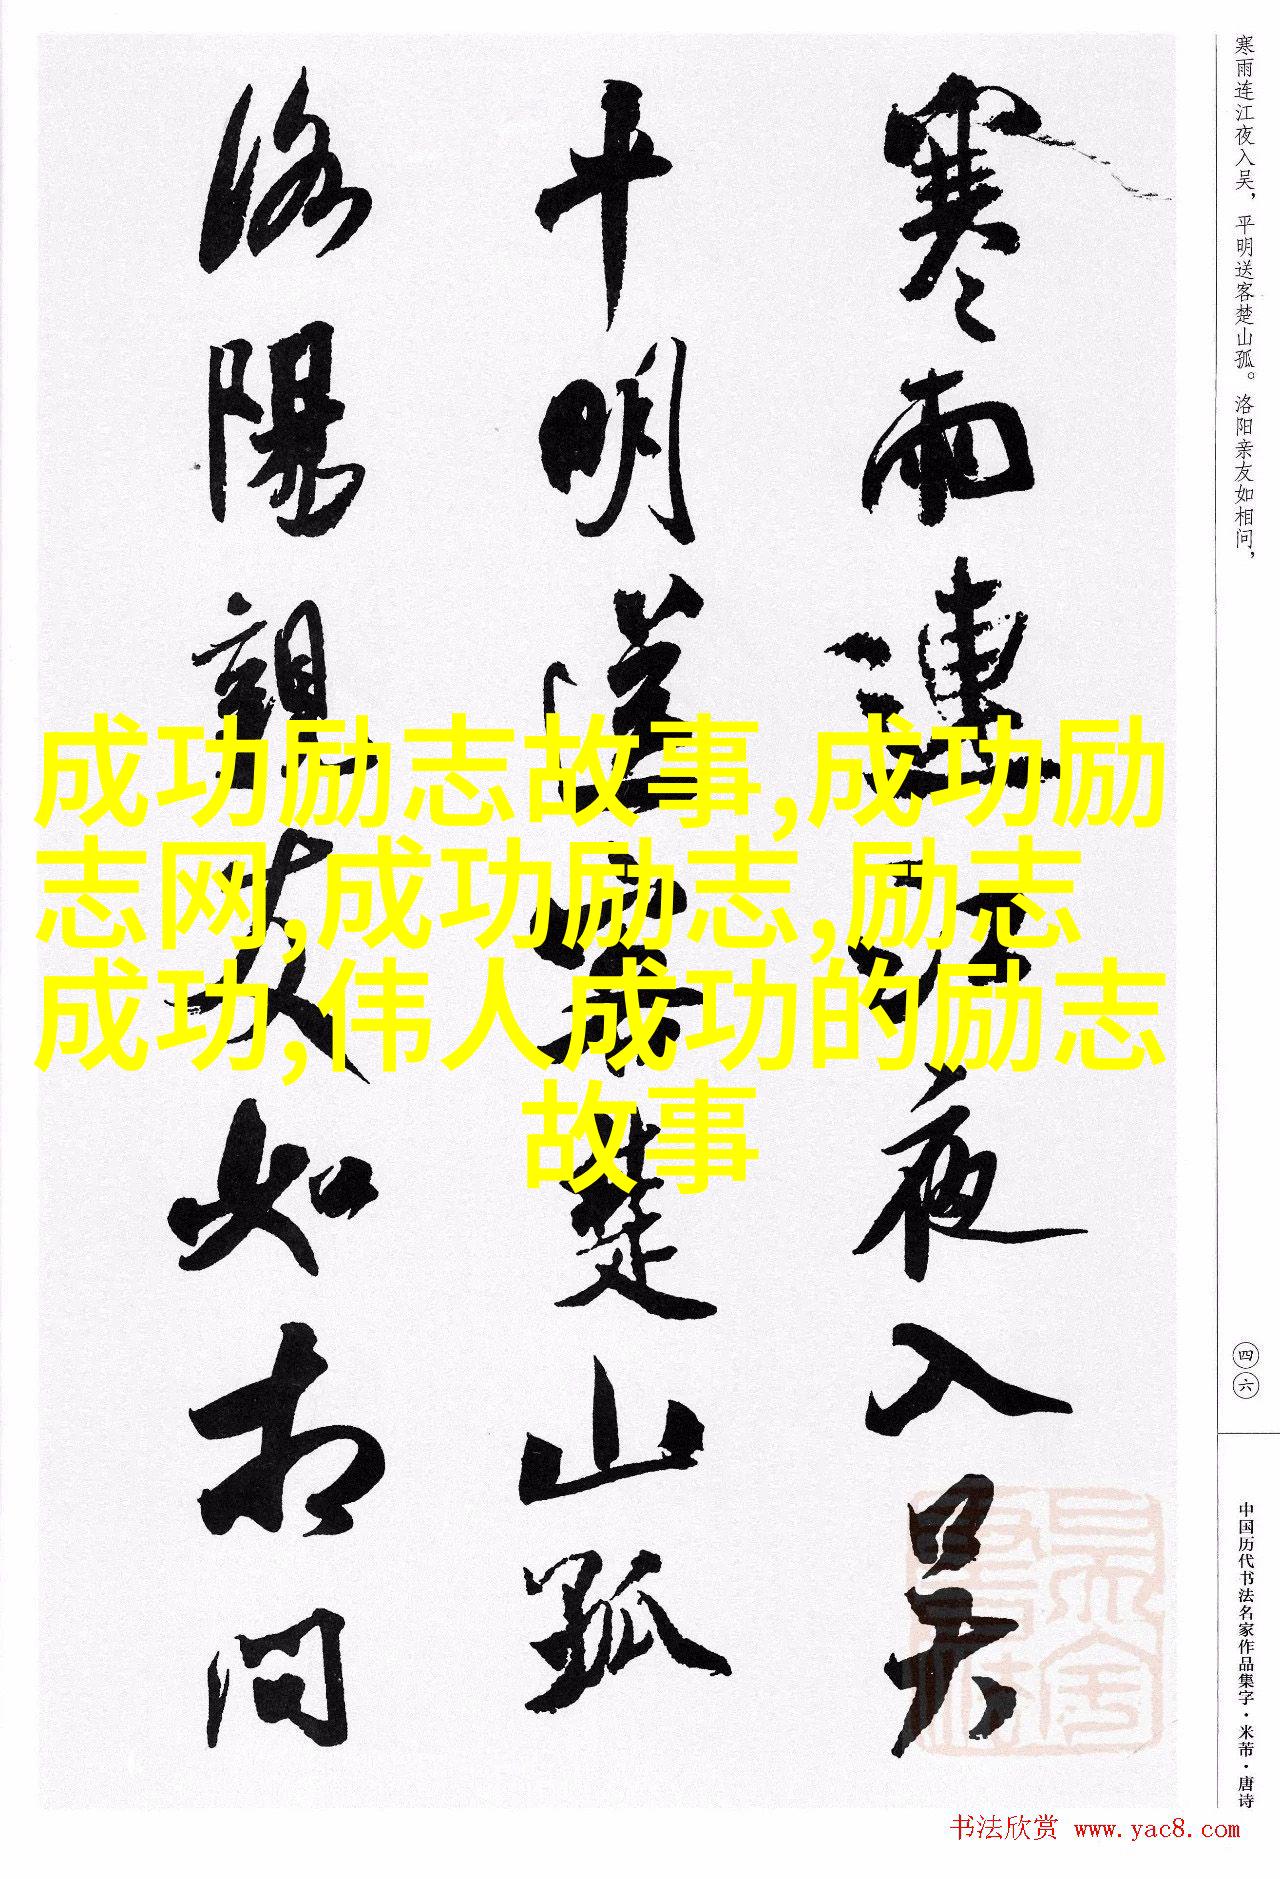 寒雨连江夜入吴，平明送客楚山孤。洛阳亲友如相问，
四六
中国历代书法名家作品集字·米芾·唐诗
寒雨連江夜入吴
平明送客楚山孤
洛陽親友如相問
成功励志故事,成功励
志网,成功励志,励志
成功,伟人成功的励志
故事
书法欣赏 www.yac8.com